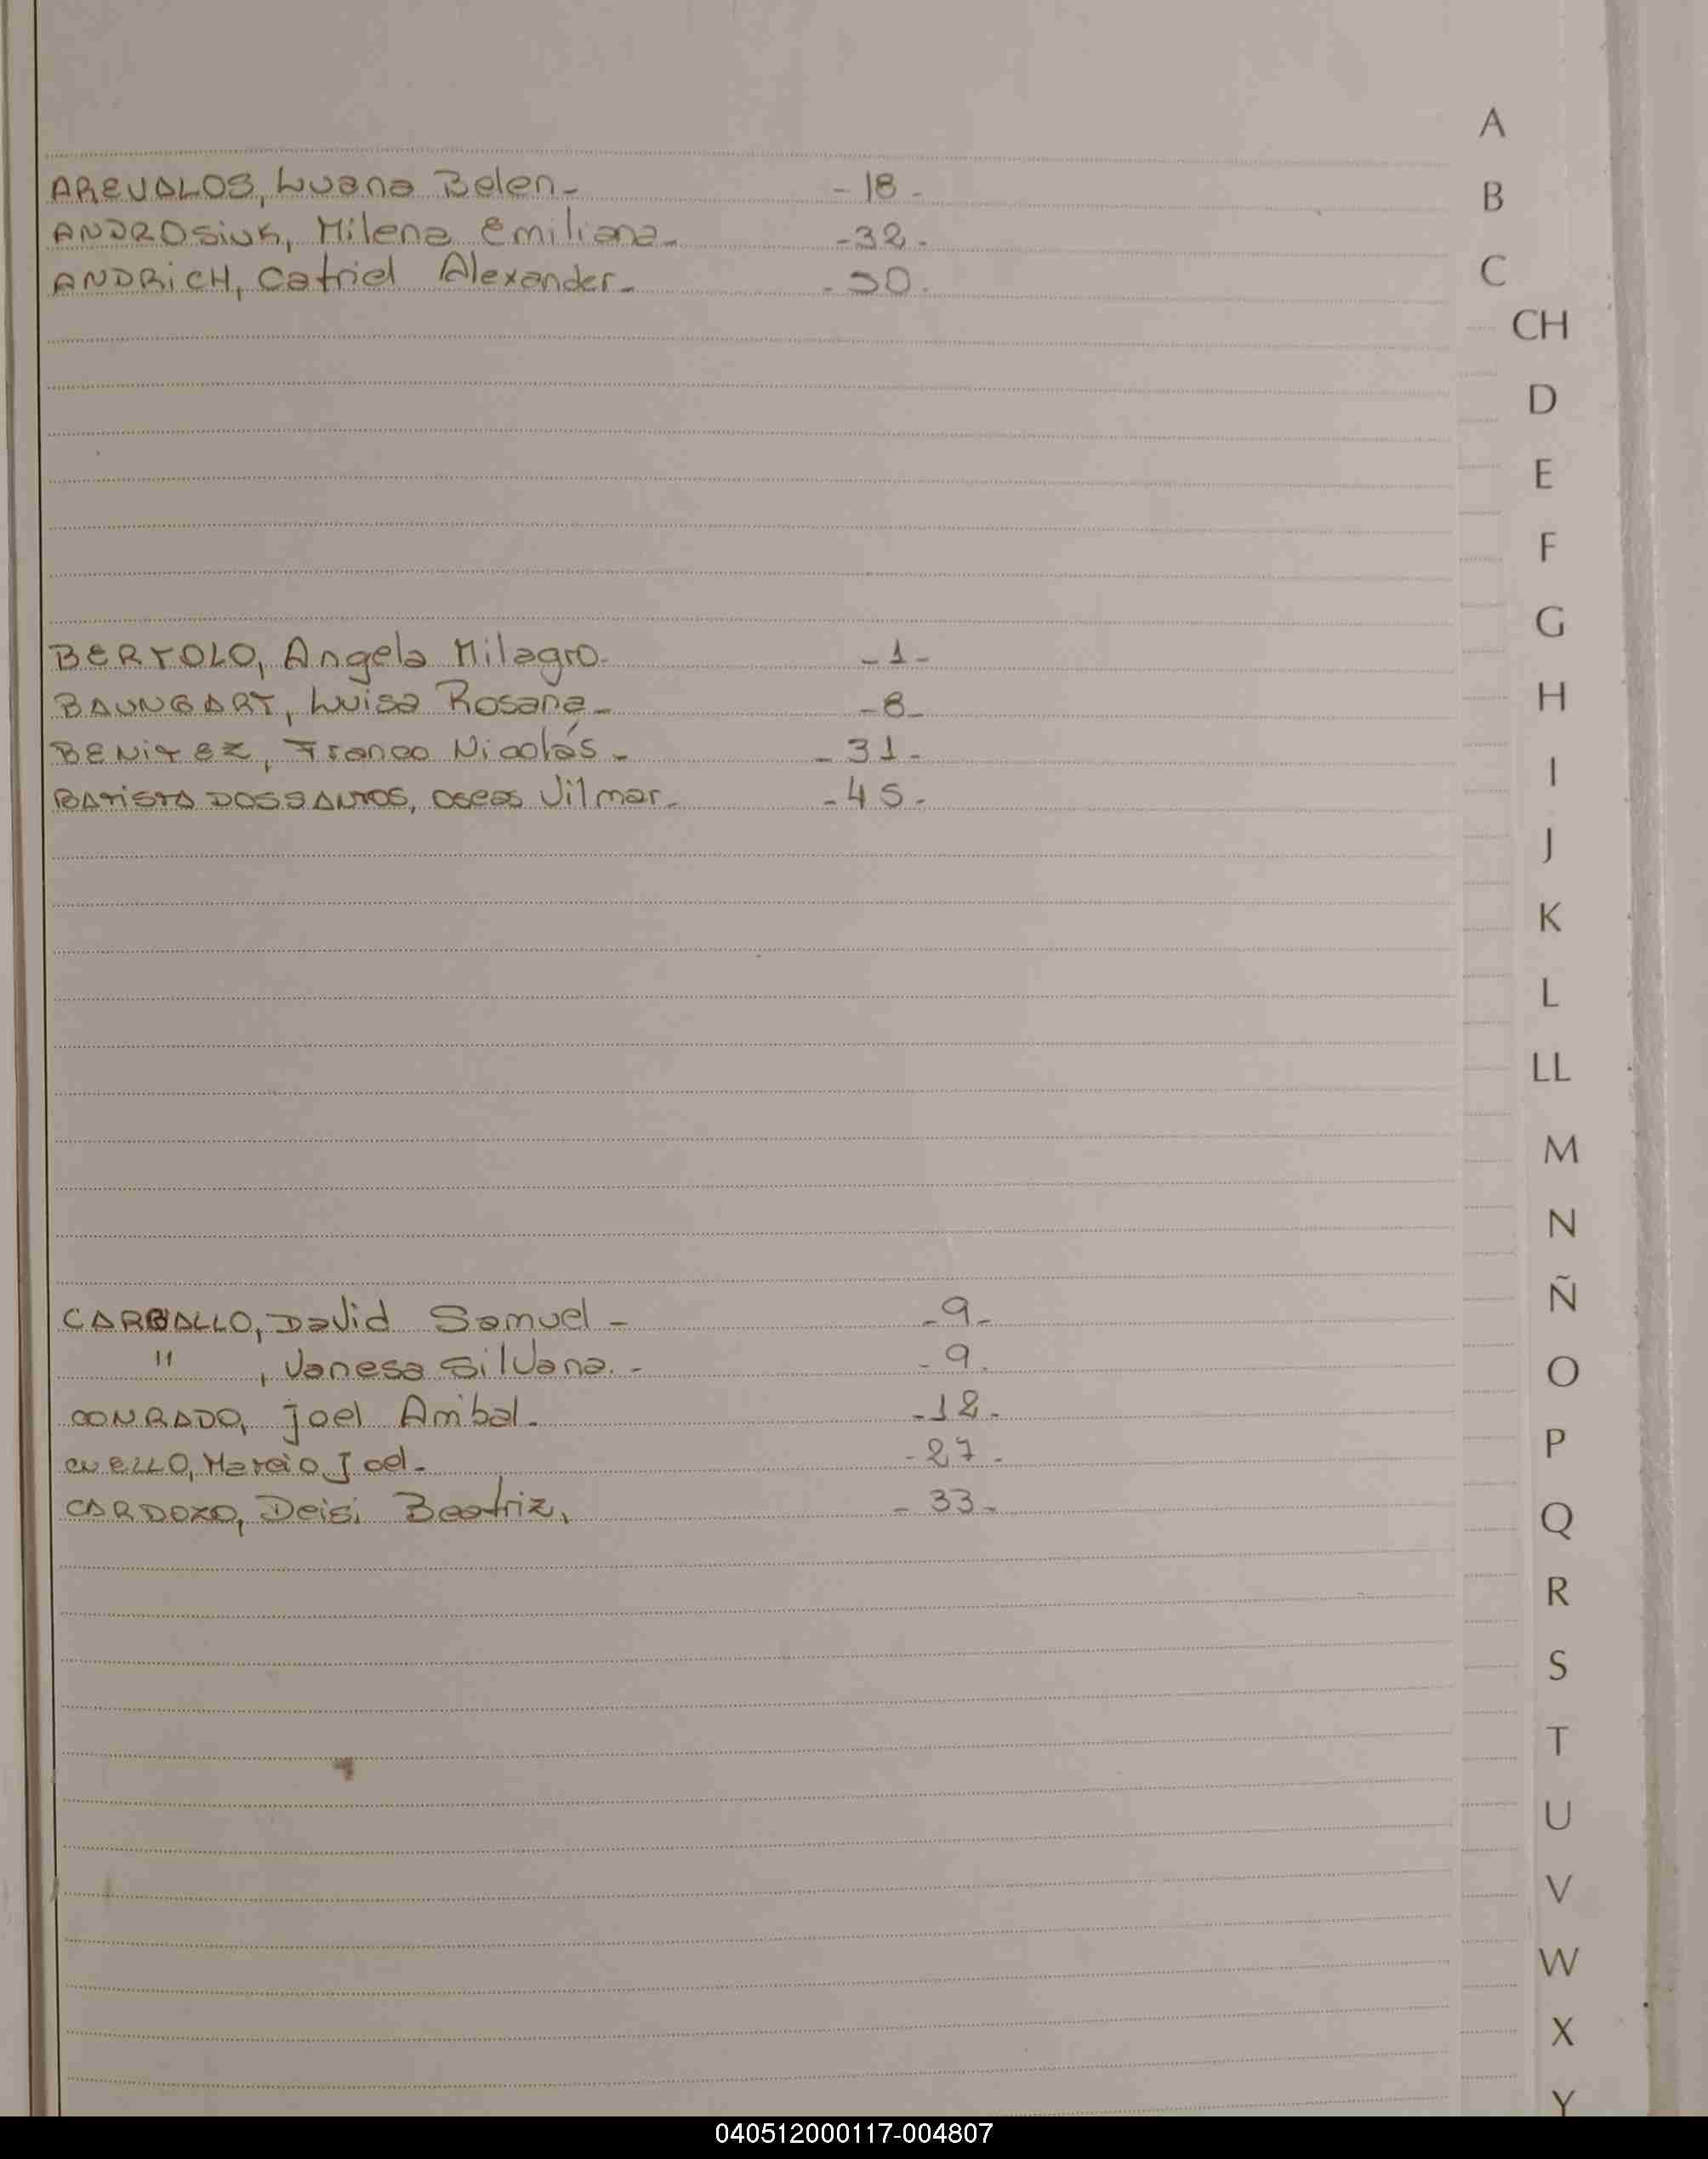 A
AREVALOS, Luana Belen- -18-
B
ANDROSIUK, Milena Emiliana- -32-
C
ANDRICH, Catriel Alexander- -50-
CH
D
E
F
G
BERTOLO, Angela Milagro. -1-
H
BAUNGART, Luisa Rosana- -8-
BENITEZ, Franco Nicolás- -31-
I
BATISTA DOS SANTOS, Oseas Vilmar- -45-
J
K
L
LL
M
N
Ñ
CARBALLO, David Samuel- -9-
" , Vanesa Silvana.- -9-
O
CONRADO, Joel Anibal- -12-
P
CUELLO, Marcio Joel- -27-
CARDOZO, Deisi Beatriz. -33-
Q
R
S
T
U
V
W
X
Y
040512000117-004807